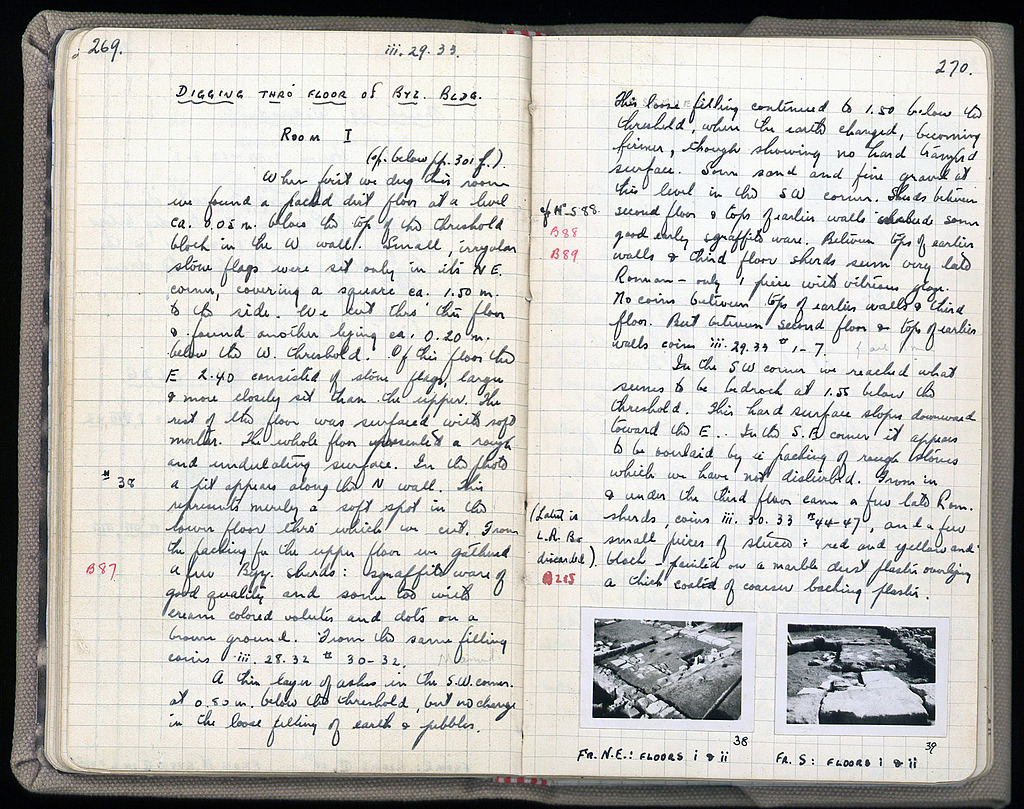 269.
iii. 29. 33.
DIGGING THRO' FLOOR OF BYZ. BLDG.
ROOM I
(cp. below pp. 301 f.).
When first we dug this room
we found a packed dirt floor at a level
ca. 0.05 m. below the top of the threshold
block in the W wall. Small, irregular
stone flags were set only in its N E.
corner, covering a square ca. 1.50 m.
to the side. We cut thro' this floor
& found another lying ca. 0.20 m.
below the W. threshold. Of this floor the
E 2.40 consisted of stone flags, larger
& more closely set than the upper. The
rest of the floor was surfaced with soft
mortar. The whole floor presented a rough
and undulating surface. In the photo
# 38
a pit appears along the N wall. This
represents merely a soft spot in the
lower floor thro' which we cut. From
the packing for the upper floor we gathered
B87
a few Byz. sherds: sgraffito ware of
good quality and some too with
cream colored volutes and dots on a
brown ground. From the same filling
coins iii. 28. 32 # 30-32.
A thin layer of ashes in the S.W. corner
at 0.80 m. below the threshold, but no change
in the loose filling of earth & pebbles.
270.
This loose filling continued to 1.50 below the
threshold, when the earth changed, becoming
firmer, though showing no hard tramped
surface. Some sand and fine gravel at
this level in the SW corner. Sherds between
cf Nº S 88.
second floor & tops of earlier walls include some
B88
good early sgraffito ware. Between tops of earlier
B89
walls & third floor sherds seem very late
Roman – only 1 piece with vitreous glaze.
No coins between tops of earlier walls & third
floor. But between second floor & tops of earlier
walls coins iii. 29. 33 # 1-7.
In the SW corner we reached what
seems to be bedrock at 1.55 below the
threshold. This hard surface slopes downward
toward the E. In the S.E. corner it appears
to be overlaid by a packing of rough stones
which we have not disturbed. From in
& under the third floor came a few late Rom.
(Latest is
sherds, coins iii. 30. 33 # 44-47, and a few
L.R. Bo
small pieces of stucco: red and yellow and
discarded)
black – painted on a marble dust plaster overlying
B215
a thick coated of coarser backing plaster.
38
39
FR. N.E.: FLOORS i & ii
FR. S: FLOORS i & ii